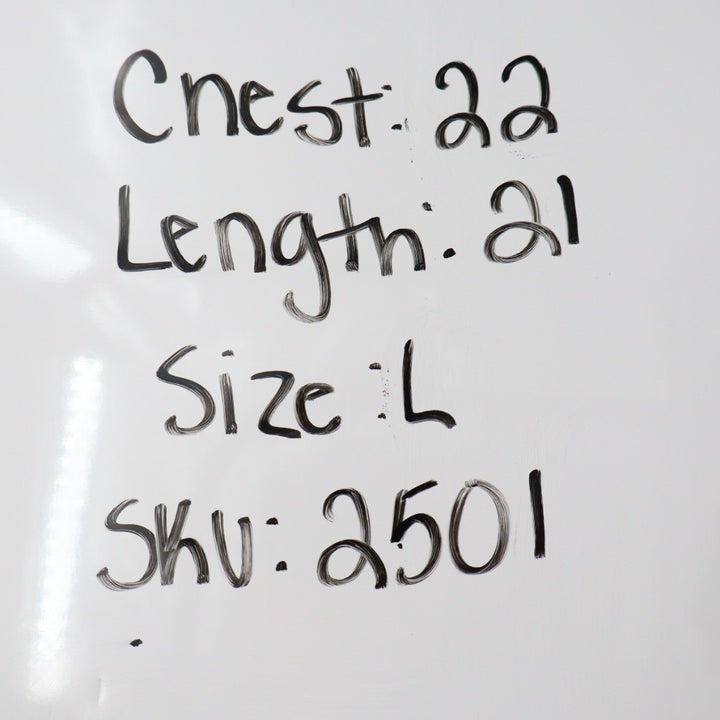 Chest: 22
Length: 21
Size: L
SKU: 2501